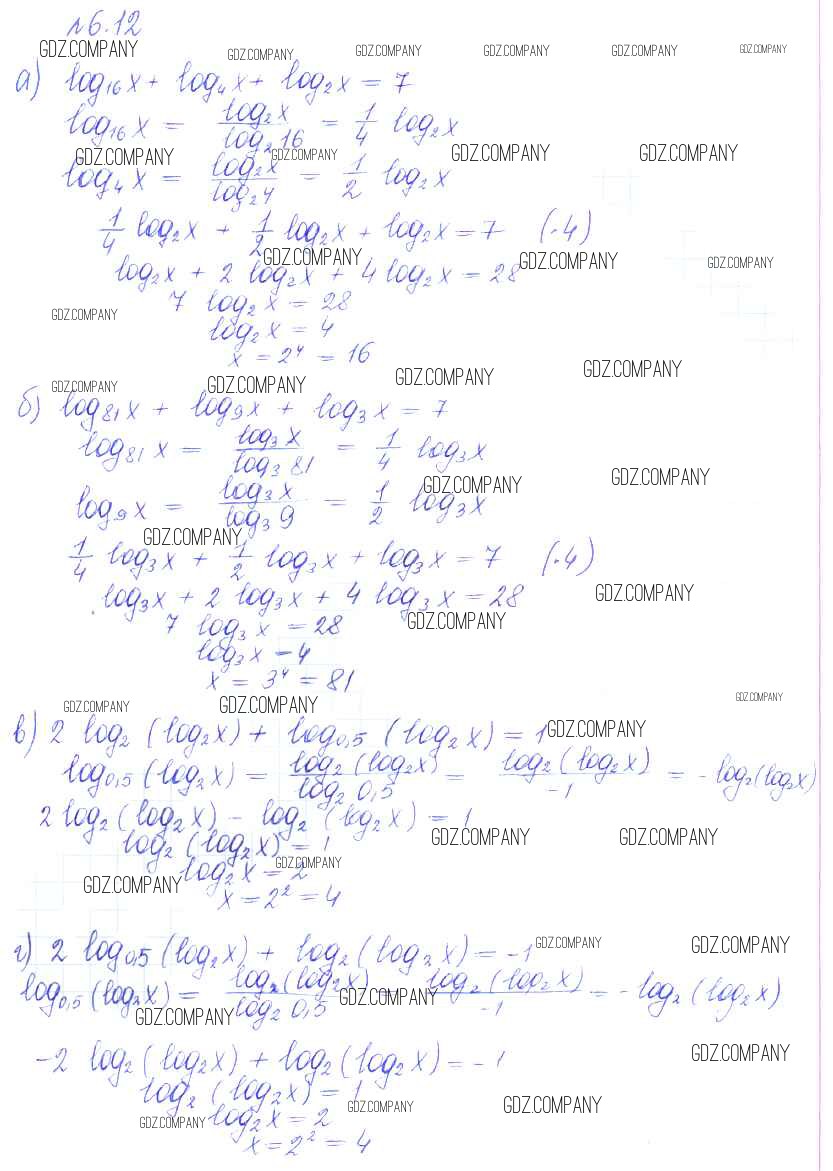 №6.12
GDZ.COMPANY GDZ.COMPANY GDZ.COMPANY GDZ.COMPANY GDZ.COMPANY GDZ.COMPANY
а) log₁₆x + log₄x + log₂x = 7
log₁₆x = log₂x / log₂16 = 1/4 log₂x
GDZ.COMPANY GDZ.COMPANY GDZ.COMPANY GDZ.COMPANY
log₄x = log₂x / log₂4 = 1/2 log₂x
1/4 log₂x + 1/2 log₂x + log₂x = 7 (·4)
GDZ.COMPANY GDZ.COMPANY GDZ.COMPANY
log₂x + 2 log₂x + 4 log₂x = 28
7 log₂x = 28
GDZ.COMPANY
log₂x = 4
x = 2⁴ = 16
GDZ.COMPANY GDZ.COMPANY GDZ.COMPANY GDZ.COMPANY
б) log₈₁x + log₉x + log₃x = 7
log₈₁x = log₃x / log₃81 = 1/4 log₃x
GDZ.COMPANY GDZ.COMPANY
log₉x = log₃x / log₃9 = 1/2 log₃x
GDZ.COMPANY
1/4 log₃x + 1/2 log₃x + log₃x = 7 (·4)
log₃x + 2 log₃x + 4 log₃x = 28 GDZ.COMPANY
7 log₃x = 28 GDZ.COMPANY
log₃x - 4
x = 3⁴ = 81
GDZ.COMPANY GDZ.COMPANY GDZ.COMPANY
в) 2 log₂(log₂x) + log₀,₅(log₂x) = 1 GDZ.COMPANY
log₀,₅(log₂x) = log₂(log₂x) / log₂0,5 = log₂(log₂x) / -1 = -log₂(log₂x)
2 log₂(log₂x) - log₂(log₂x) = 1
GDZ.COMPANY GDZ.COMPANY
log₂(log₂x) = 1
log₂x = 2 GDZ.COMPANY
GDZ.COMPANY
x = 2² = 4
г) 2 log₀,₅(log₂x) + log₂(log₂x) = -1 GDZ.COMPANY GDZ.COMPANY
log₀,₅(log₂x) = log₂(log₂x) / log₂0,5 = log₂(log₂x) / -1 = -log₂(log₂x)
GDZ.COMPANY GDZ.COMPANY
-2 log₂(log₂x) + log₂(log₂x) = -1 GDZ.COMPANY
log₂(log₂x) = 1
GDZ.COMPANY GDZ.COMPANY
GDZ.COMPANY log₂x = 2
x = 2² = 4